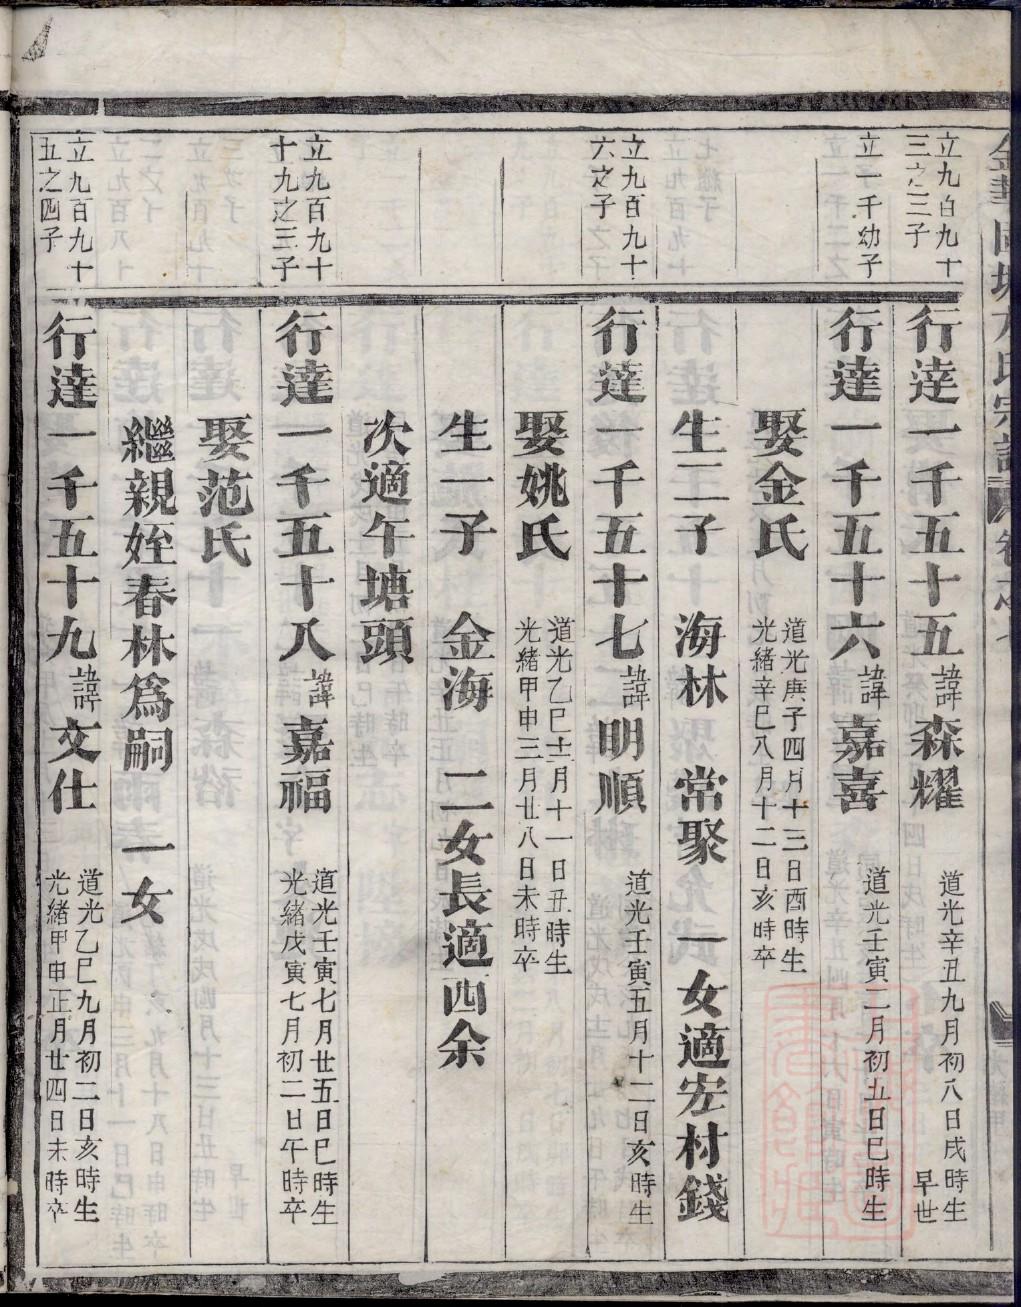 立九百九十
三之三子
行達一千五十五諱森耀
道光辛丑九月初八日戌時生
早世
立一千幼子
行達一千五十六諱嘉喜
道光壬寅二月初五日巳時生
娶金氏
道光庚子四月十三日酉時生
光緒辛巳八月十二日亥時卒
生二子 海林 常聚 一女適宏村錢
立九百九十
六之子
行達一千五十七諱明順
道光壬寅五月十二日亥時生
娶姚氏
道光乙巳十二月十一日丑時生
光緒甲申三月廿八日未時卒
生一子 金海 二女長適西余
次適午塘頭
立九百九十
十九之三子
行達一千五十八諱嘉福
道光壬寅七月廿五日巳時生
光緒戊寅七月初二日午時卒
娶范氏
繼親姪春林為嗣 一女
立九百九十
五之四子
行達一千五十九諱文仕
道光乙巳九月初二日亥時生
光緒甲申正月廿四日未時卒